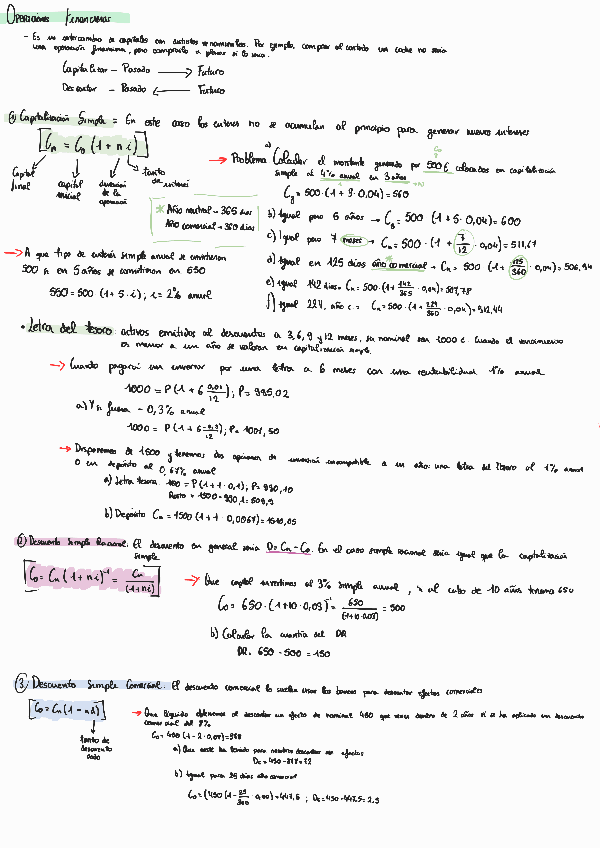 Operaciones Financieras
- Es un intercambio de capitales con distintos vencimientos. Por ejemplo, comprar al contado un coche no sería
una operación financiera, pero comprarlo a plazos sí lo sería.
Capitalizar - Pasado → Futuro
Descontar - Pasado ← Futuro
① Capitalización Simple = En este caso los intereses no se acumulan al principio para generar nuevos intereses
Cn = C0 (1 + n i)
Capital final
capital inicial
duración de la operación
tanto de interés
* Año neutral → 365 días
Año comercial → 360 días
→ Problema a) Calcular el montante generado por 500 € colocados en capitalización
simple al 4% anual en 3 años
C3 = 500 · (1 + 3 · 0,04) = 560
b) Igual pero 5 años → C5 = 500 (1 + 5 · 0,04) = 600
c) Igual pero 7 meses → Cn = 500 · (1 + 7/12 · 0,04) = 511,67
d) Igual en 125 días año comercial → Cn = 500 (1 + 125/360 · 0,04) = 506,94
e) Igual 142 días → Cn = 500 · (1 + 142/365 · 0,04) = 507,78
f) Igual 224, año c. → Cn = 500 · (1 + 224/360 · 0,04) = 512,44
→ A que tipo de interés simple anual se invirtieron
500 si en 5 años se convirtieron en 550
550 = 500 (1 + 5 · i) ; i = 2% anual
• Letra del tesoro: activos emitidos al descuento a 3, 6, 9 y 12 meses, su nominal son 1000 €. Cuando el vencimiento
es menor a un año se valoran en capitalización simple.
→ Cuanto pagará un inversor por una letra a 6 meses con una rentabilidad 1% anual
1000 = P (1 + 6 0,01/12) ; P = 995,02
a) Y si fuera - 0,3% anual
1000 = P (1 + 6 -0,3/12) ; P = 1001,50
→ Disponemos de 1500 y tenemos dos opciones de inversión incompatible a un año: una letra del tesoro al 1% anual
o un depósito al 0,67% anual
a) Letra tesoro 1000 = P (1 + 1 · 0,1) ; P = 990,10
Resto → 1500 - 990,1 = 509,9
b) Depósito Cn = 1500 (1 + 1 · 0,0067) = 1510,05
② Descuento Simple Racional: El descuento en general sería D = Cn - C0. En el caso simple racional sería igual que la capitalización
simple
C0 = Cn (1 + n i)⁻¹ = Cn/(1 + n i)
→ Que capital invertimos al 3% simple anual, si al cabo de 10 años tenemos 650
C0 = 650 · (1 + 10 · 0,03)⁻¹ = 650/(1 + 10 · 0,03) = 500
b) Calcular la cuantía del DR
DR = 650 - 500 = 150
③ Descuento Simple Comercial: El descuento comercial lo suelen usar los bancos para descontar efectos comerciales
C0 = Cn (1 - n d)
tanto de descuento dado
→ Que líquido obtenemos al descontar un efecto de nominal 450 que vence dentro de 2 años si se ha aplicado un descuento
comercial del 8%
C0 = 450 (1 - 2 · 0,08) = 378
a) Que coste ha tenido para nosotros descontar ese efecto
Dc = 450 - 378 = 72
b) Igual para 25 días año comercial
C0 = (450 (1 - 25/360 · 0,08) = 447,5 ; Dc = 450 - 447,5 = 2,5